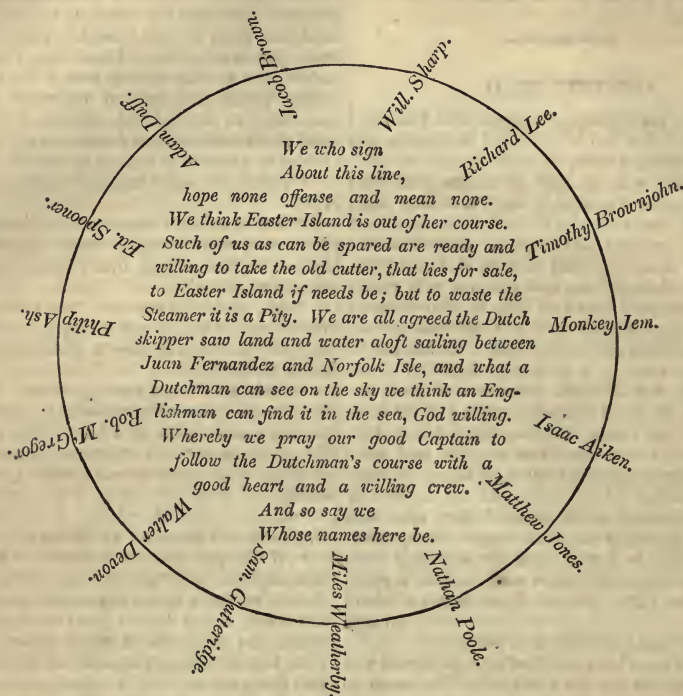 We who sign
About this line,
hope none offense and mean none.
We think Easter Island is out of her course.
Such of us as can be spared are ready and
willing to take the old cutter, that lies for sale,
to Easter Island if needs be; but to waste the
Steamer it is a Pity. We are all agreed the Dutch
skipper saw land and water aloft sailing between
Juan Fernandez and Norfolk Isle, and what a
Dutchman can see on the sky we think an Eng-
lishman can find it in the sea, God willing.
Whereby we pray our good Captain to
follow the Dutchman's course with a
good heart and a willing crew.
And so say we
Whose names here be.
Jacob Brown.
Will. Sharp.
Richard Lee.
Timothy Brownjohn.
Monkey Jem.
Isaac Aiken.
Matthew Jones.
Nathan Poole.
Miles Weatherby.
Sam. Gutteridge.
Walter Devon.
Rob. M'Gregor.
Philip Ash.
Ed. Spooner.
Adam Duff.